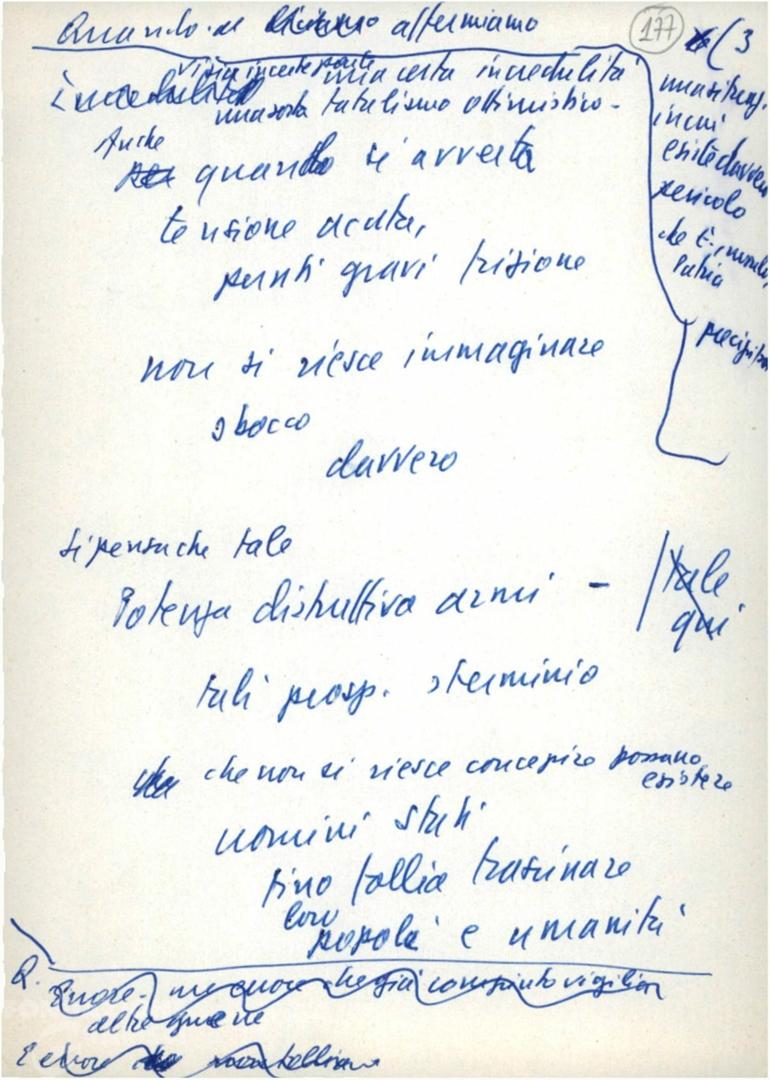 Quando affermiamo
177
(3
una certa incredulità
una sorta fatalismo ottimistico -
Anche
quando si avverta
tensione acuta,
punti gravi frizione
non si riesce immaginare
sbocco
davvero
si pensa che tale
Potenza distruttiva armi - tale
qui
tali prosp. sterminio
che non si riesce concepire possano
esistere
uomini stati
fino follia trascinare
loro
popoli e umanità
pericolo
che
Errore. che già compiuto vigilia
altre guerre